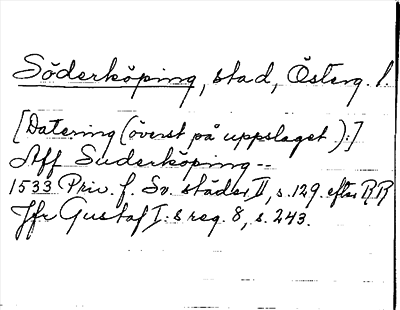 Söderköping, stad, Österg. l.
[Datering (överst på uppslaget):]
Aff Suderköping --
1533 Priv. f. Sv. städer II, s. 129. efter RR
Jfr Gustaf I:s reg. 8, s. 243.